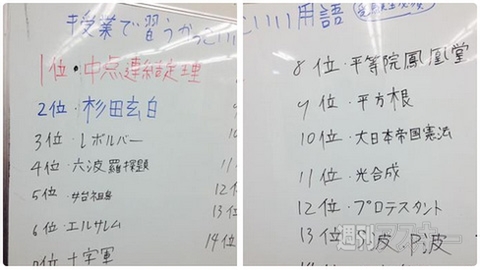 授業で習うかっこいい
1位・中点連結定理
2位・杉田玄白
3位・レボルバー
4位・六波羅探題
5位・
6位・エルサレム
7位・十字軍
11
12位
13位
14位
こいい用語
8位・平等院鳳凰堂
9位・平方根
10位・大日本帝国憲法
11位・光合成
12位・プロテスタント
13位・S波、P波